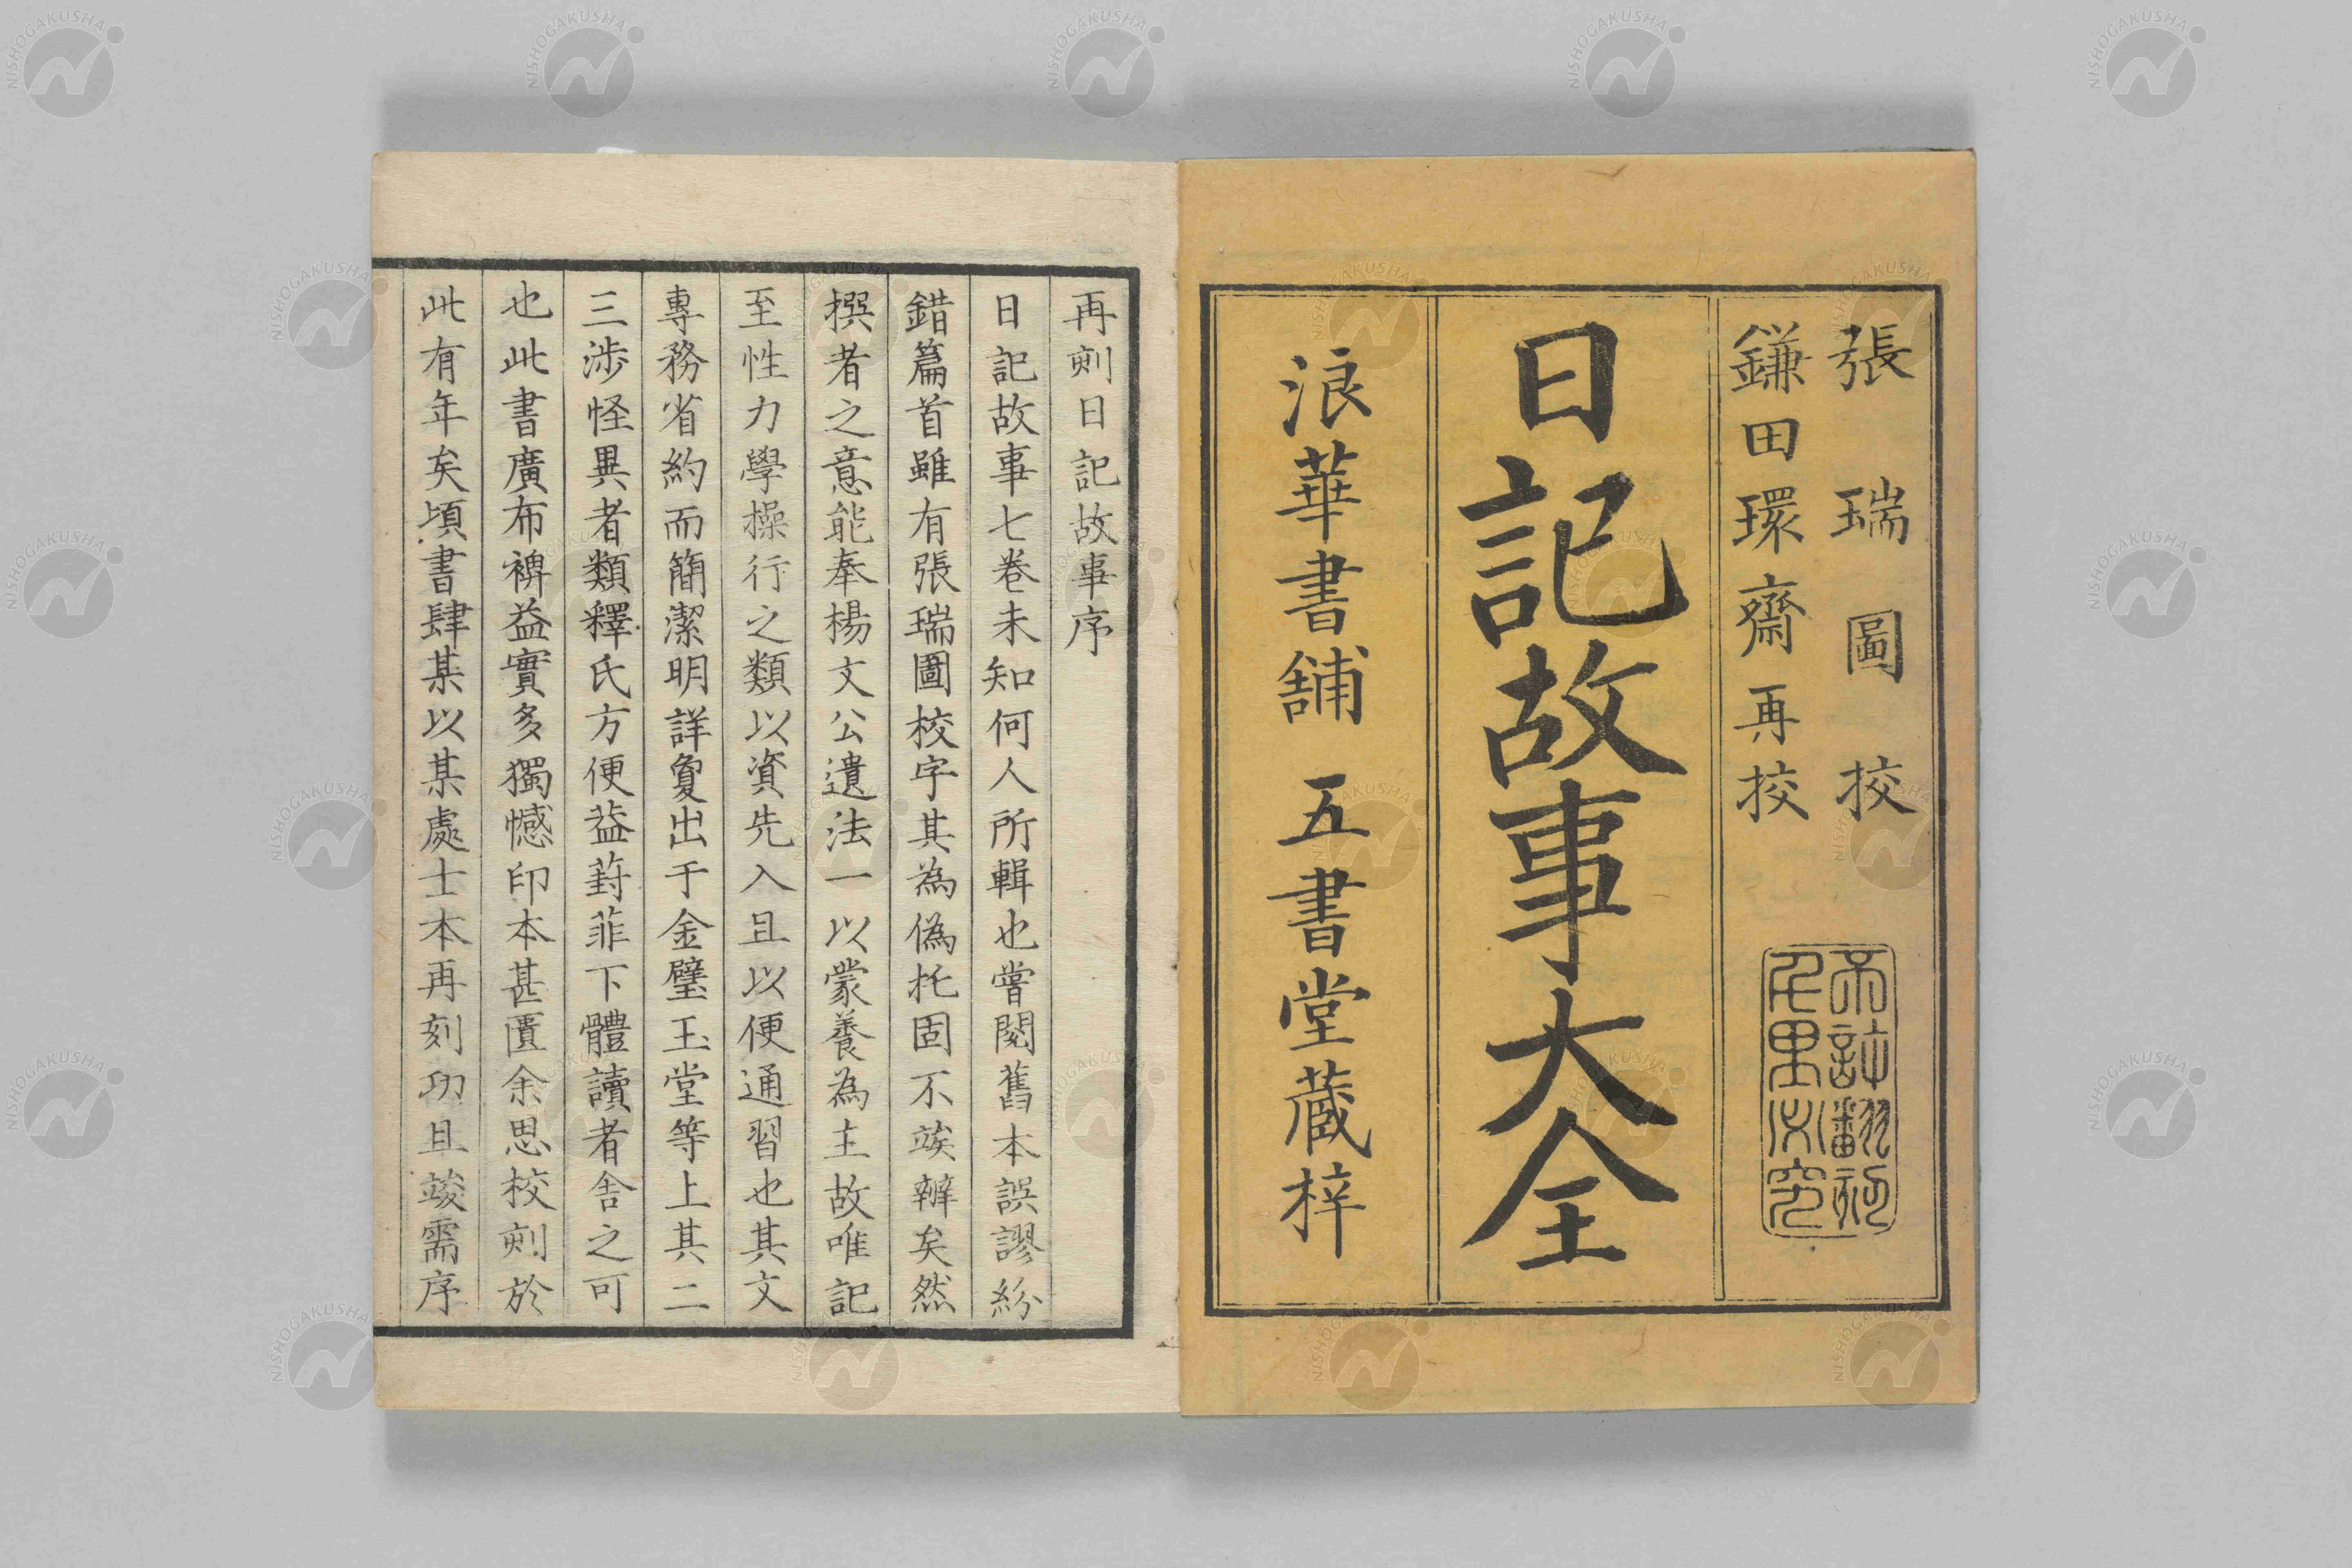 張瑞圖校
鎌田環齋再挍
日記故事大全
浪華書舗 五書堂蔵梓
再刻日記故事序
日記故事七卷未知何人所輯也嘗閱舊本誤謬紛
錯篇首雖有張瑞圖校字其為偽托固不竢辨矣然
撰者之意能奉楊文公遺法一以蒙養為主故唯記
至性力學操行之類以資先入且以便通習也其文
專務省約而簡潔明詳夐出于金璧玉堂等上其二
三涉怪異者類釋氏方便葢葑菲下體讀者舍之可
也此書廣布裨益實多獨憾印本甚匱余思校刻於
此有年矣頃書肆某以某處士本再刻功且竣需序
NISHOGAKUSHA